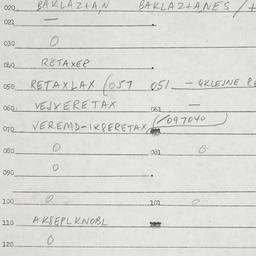 020 BAKLAZ+A,N BAKLAZ+ANES /+
022 —
030 0
040 RETAXER
050 RETAXLAX (057 051 — 4KLEJNE RE
060 VEJXERETAX 061 —
070 VEREMD-IKSERETAX (/097040
080 0 081 0
0
090
100 0 101 0
110 AKSEPLKNOBL
120 0